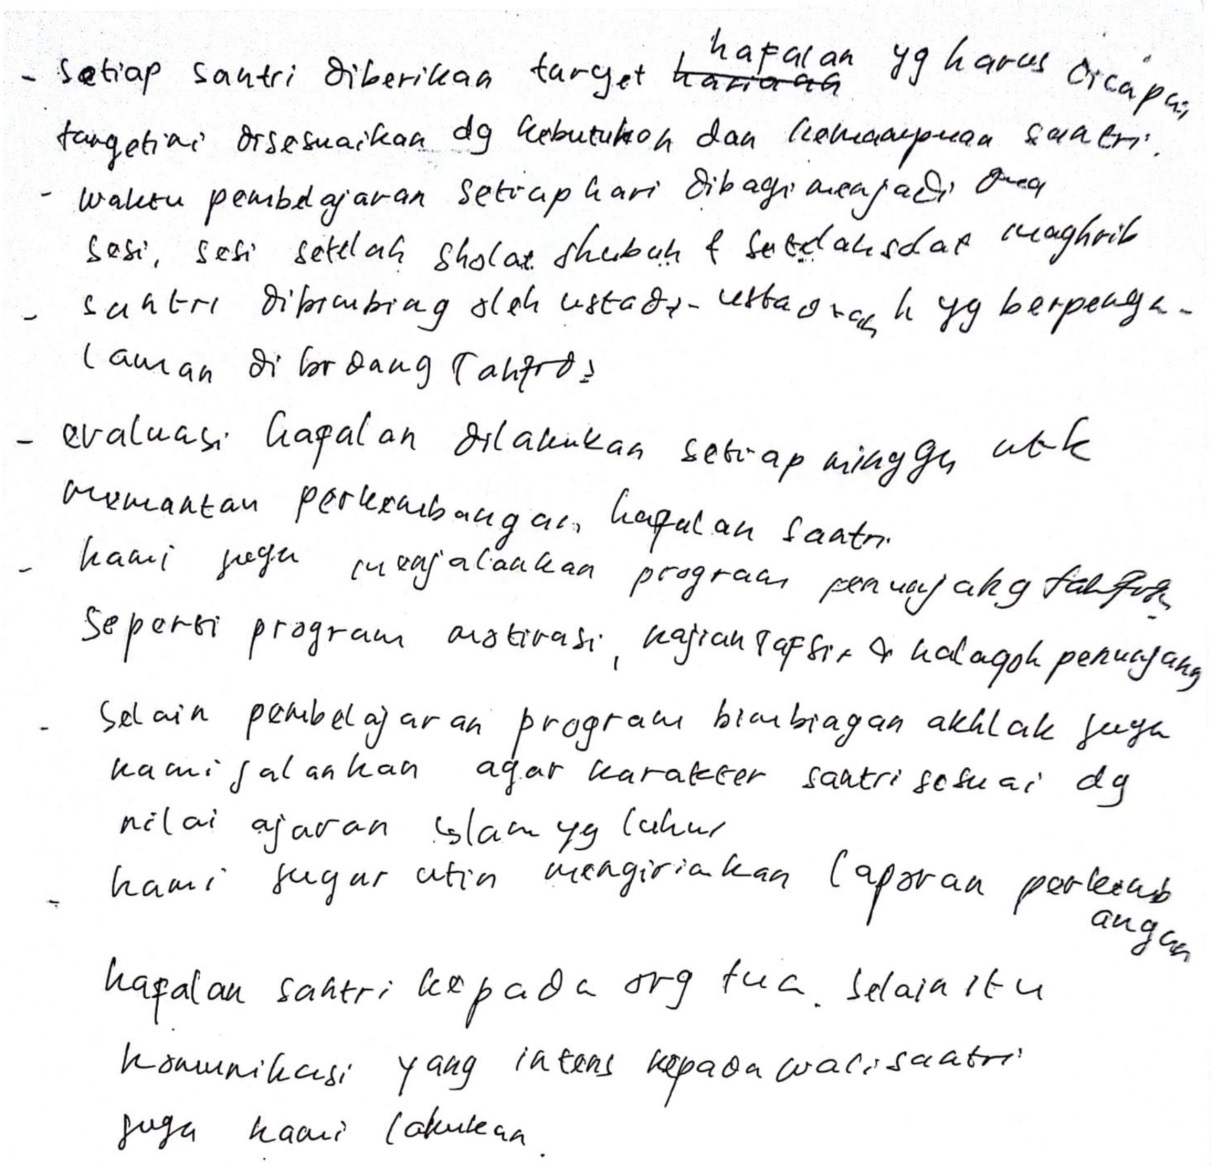 - Setiap santri diberikan target hafalan yg harus dicapai
target ini disesuaikan dg kebutuhan dan kemampuan santri.
- waktu pembelajaran setiap hari dibagi menjadi dua
sesi, sesi setelah sholat shubuh & setelah solat maghrib
- santri dibimbing oleh ustadz-ustadzah yg berpenga-
laman di bidang Tahfidz
- evaluasi hafalan dilakukan setiap minggu utk
memantau perkembangan hafalan santri
- kami juga menjalankan program penunjang tahfidz
Seperti program motivasi, kajian Tafsir & halaqoh penunjang
- Selain pembelajaran program bimbingan akhlak juga
kami jalankan agar karakter santri sesuai dg
nilai ajaran islam yg luhur
- kami juga rutin mengirimkan laporan perkemb
angan
hafalan santri kepada org tua. Selain itu
komunikasi yang intens kepada wali santri
juga kami lakukan.